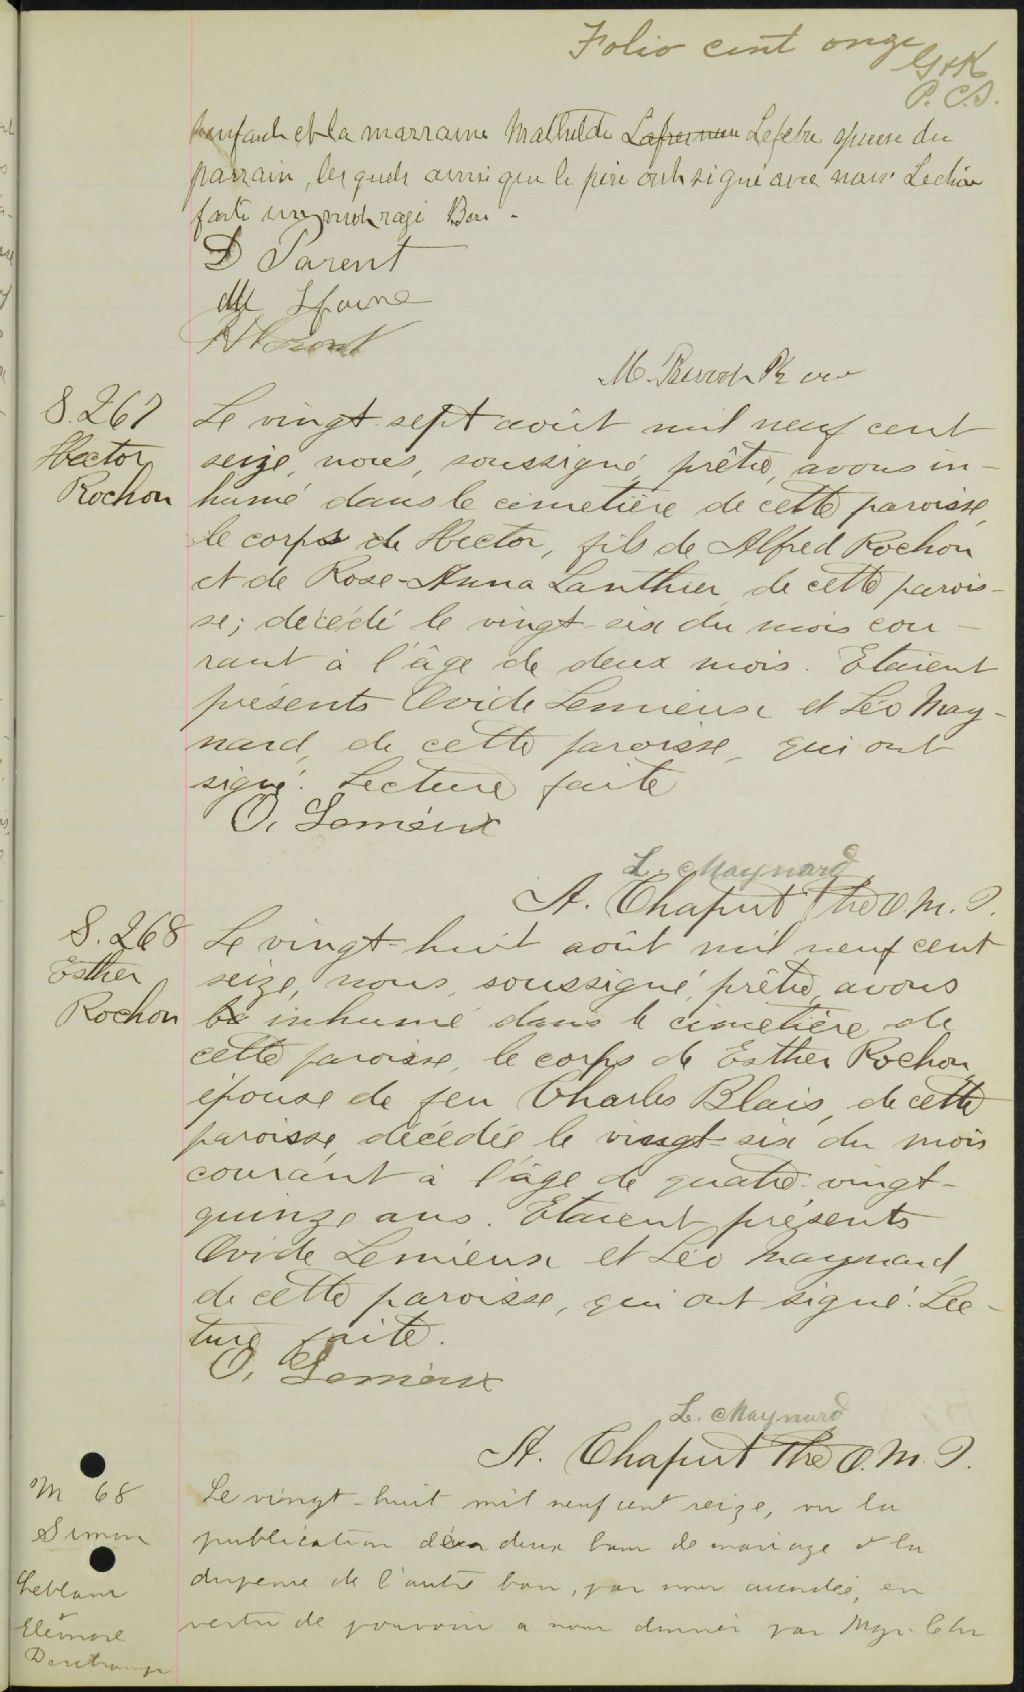 Folio cent onze
G & K
P. C.S.
l'enfant et la marraine Mathilde Lefebre épouse du
parrain, lesquels ainsi que le père ont signé avec nous. Lecture
faite un mot rayé Bon -
D Parent
M. Pr
S. 267
Hector
Rochon
Le vingt-sept août mil neuf cent
seize, nous, soussigné, prêtre, avons in-
humé dans le cimetière de cette paroisse,
le corps de Hector, fils de Alfred Rochon
et de Rose-Anna Lanthier, de cette parois-
se; décédé le vingt-six du mois cou-
rant à l'âge de deux mois. Etaient
présents Ovide Lemieux et Léo May-
nard, de cette paroisse, qui ont
signé. Lecture faite
O, Lemieux
L. Maynard
A. Chaput Ptre O.M.I.
S. 268
Esther
Rochon
Le vingt-huit août mil neuf cent
seize, nous, soussigné, prêtre, avons
inhumé dans le cimetière de
cette paroisse, le corps de Esther Rochon,
épouse de feu Charles Blais, de cette
paroisse, décédée le vingt-six du mois
courant à l'âge de quatre-vingt-
quinze ans. Etaient présents
Ovide Lemieux et Léo Maynard,
de cette paroisse, qui ont signé. Lec-
ture faite.
O, Lemieux
L. Maynard
A. Chaput Ptre O.M.I.
M 68
Simon
Leblanc
&
Eléonore
Deschamps
Le vingt-huit mil neuf cent seize, vu la
publication de deux bans de mariage & la
dispense de l'autre ban, par nous accordée, en
vertu de pouvoir a nous donnés par Mgr. Chs